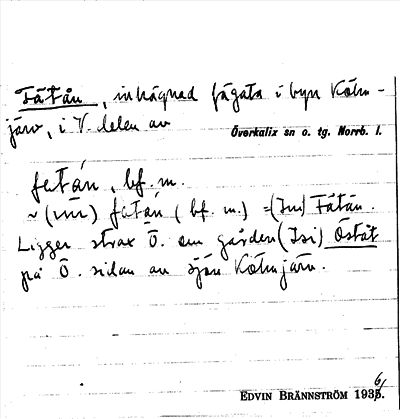 Fätån, inhägnad fägata i byn Kölm-
järv, i V. delen av
Överkalix sn o. tg. Norrb. l.
fatán, bf. m.
~ (ın) fatán (bf. m.) = (In) Fätån.
Ligger strax Ö. om gården (Isi) Östat
på Ö. sidan av sjön Kölmjärv.
EDVIN BRÄNNSTRÖM 1936.